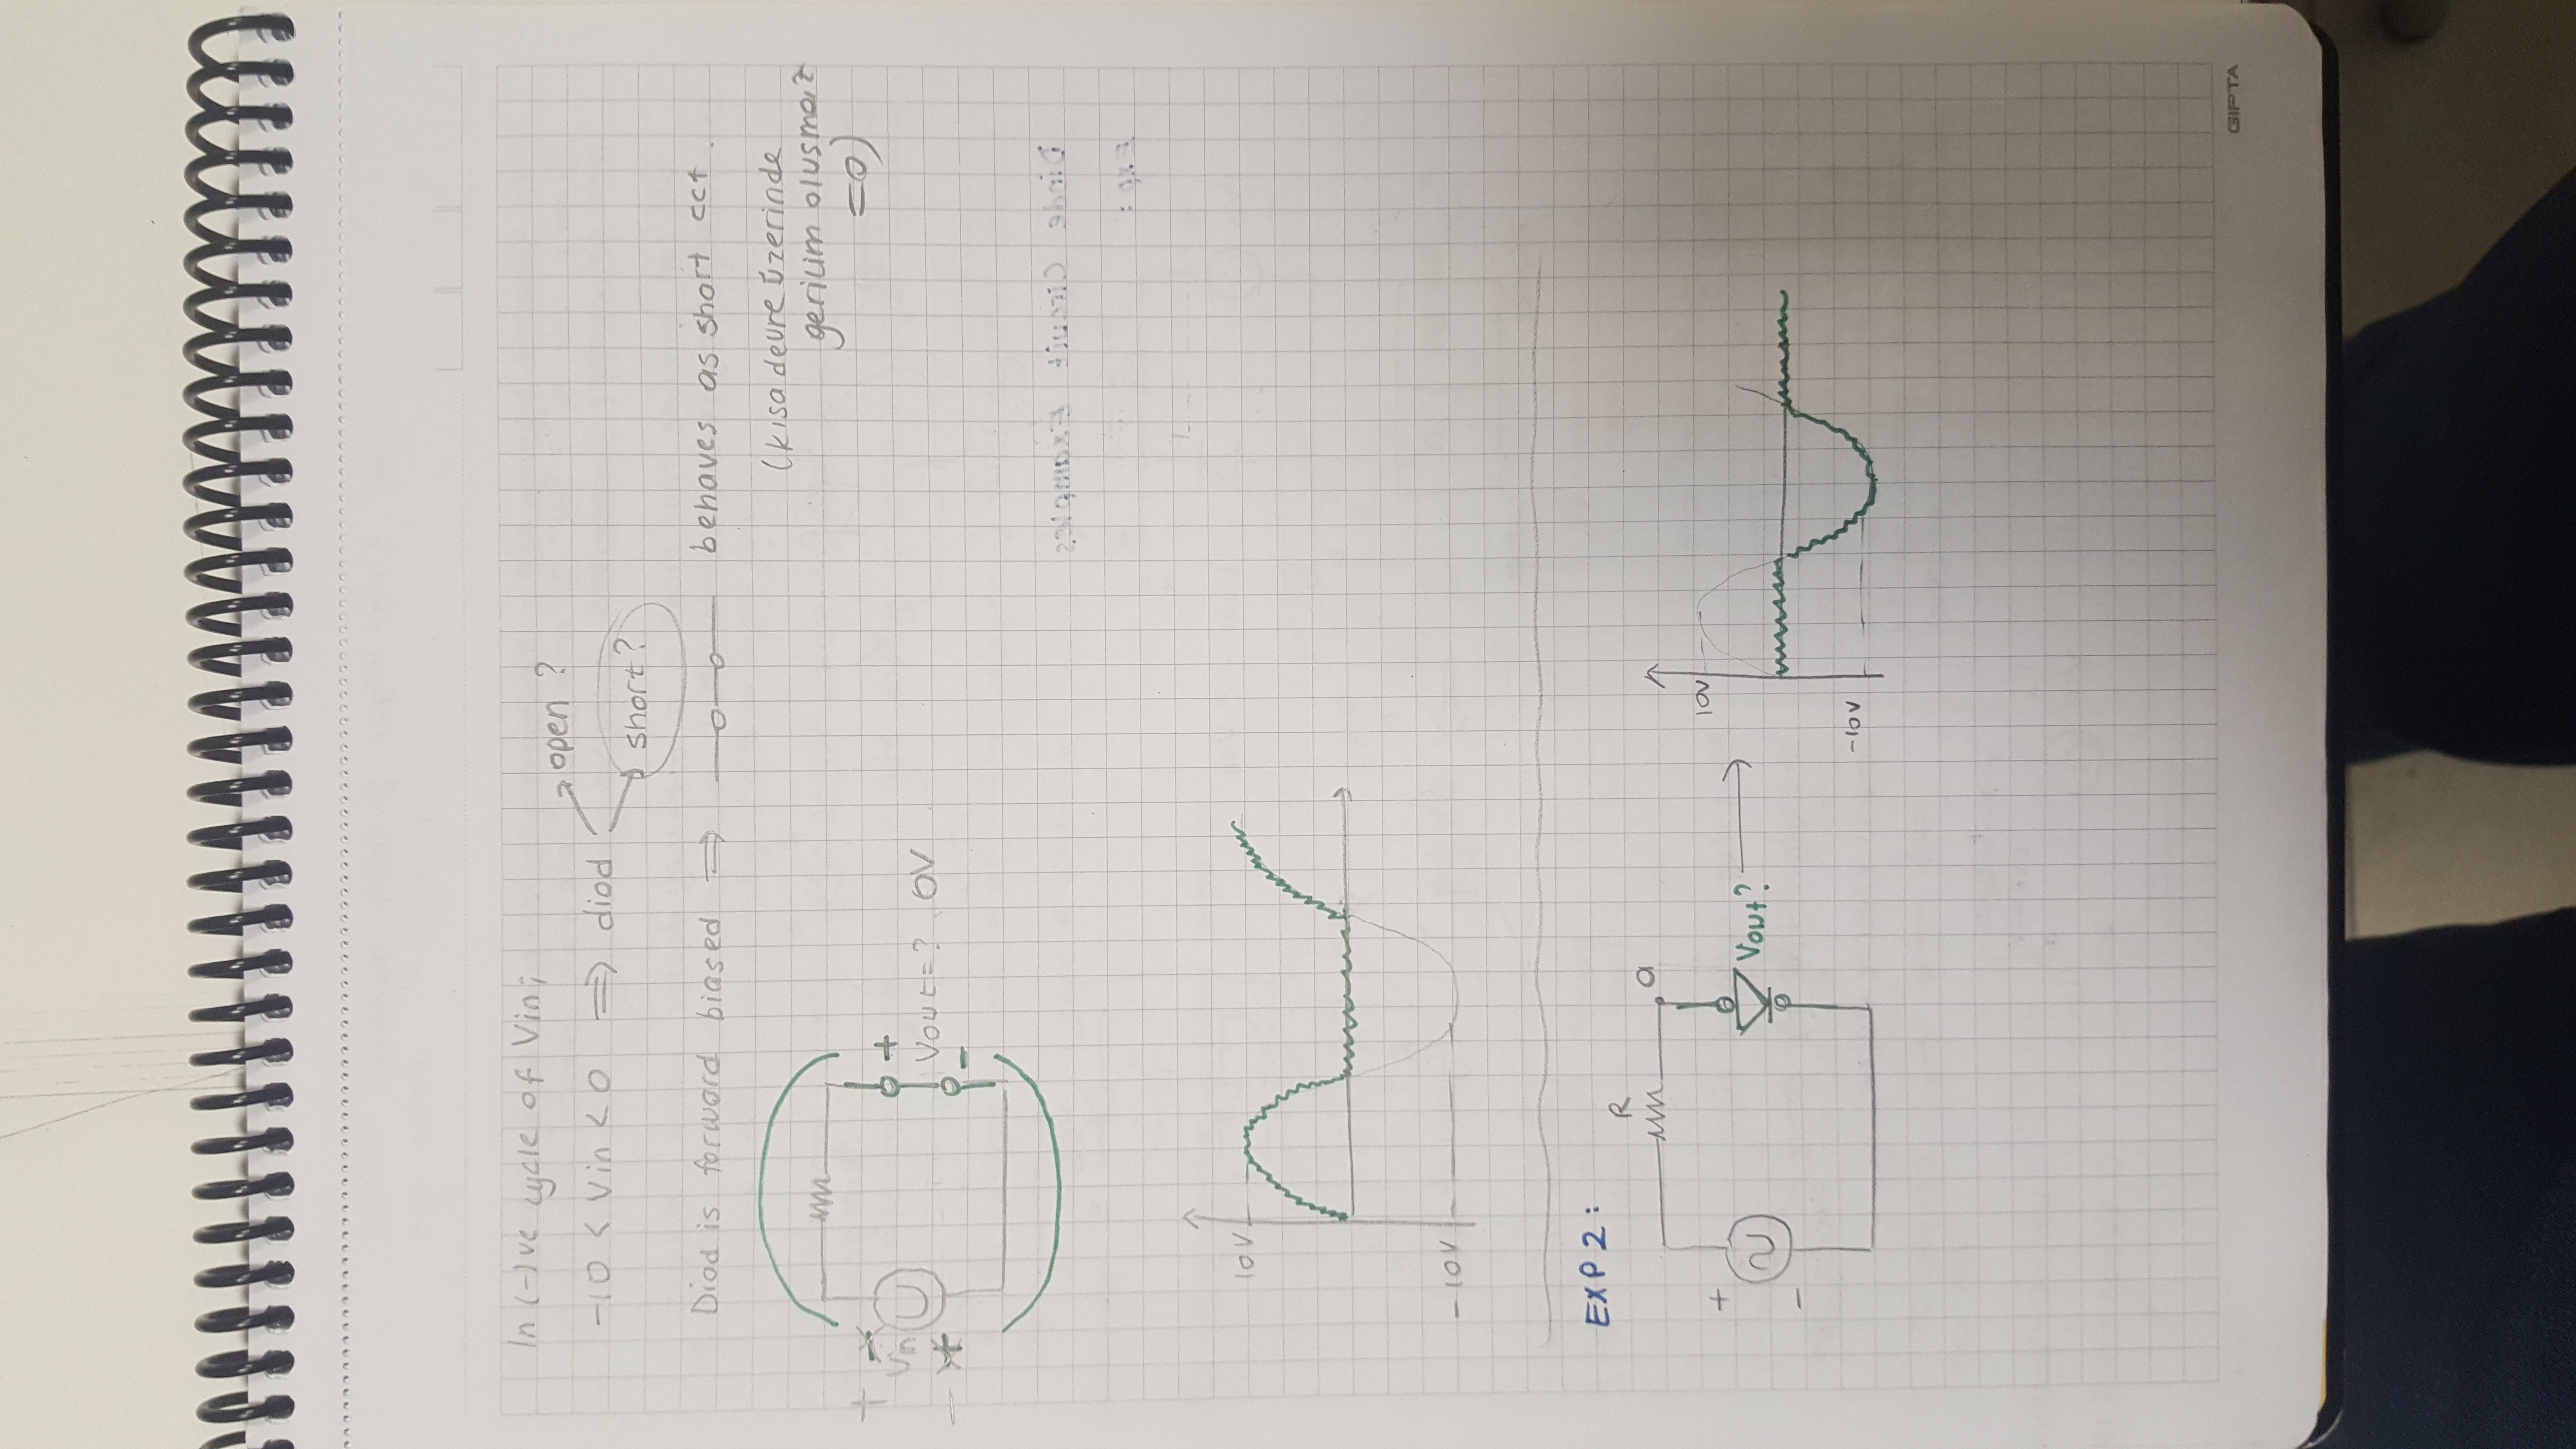 In (-)ve cycle of Vin;
open ?
-10 < Vin < 0 ⇒ diod
short?
Diod is forward biased ⇒ behaves as short cct.
(kısa devre üzerinde
gerilim olusmaz
=0)
+
Vin
-
+
Vout=? 0V
-
Diode Circuit Examples
Exp:
10V
-10V
EXP 2:
R
a
+
Vout?
-
10V
-10V
GIPTA